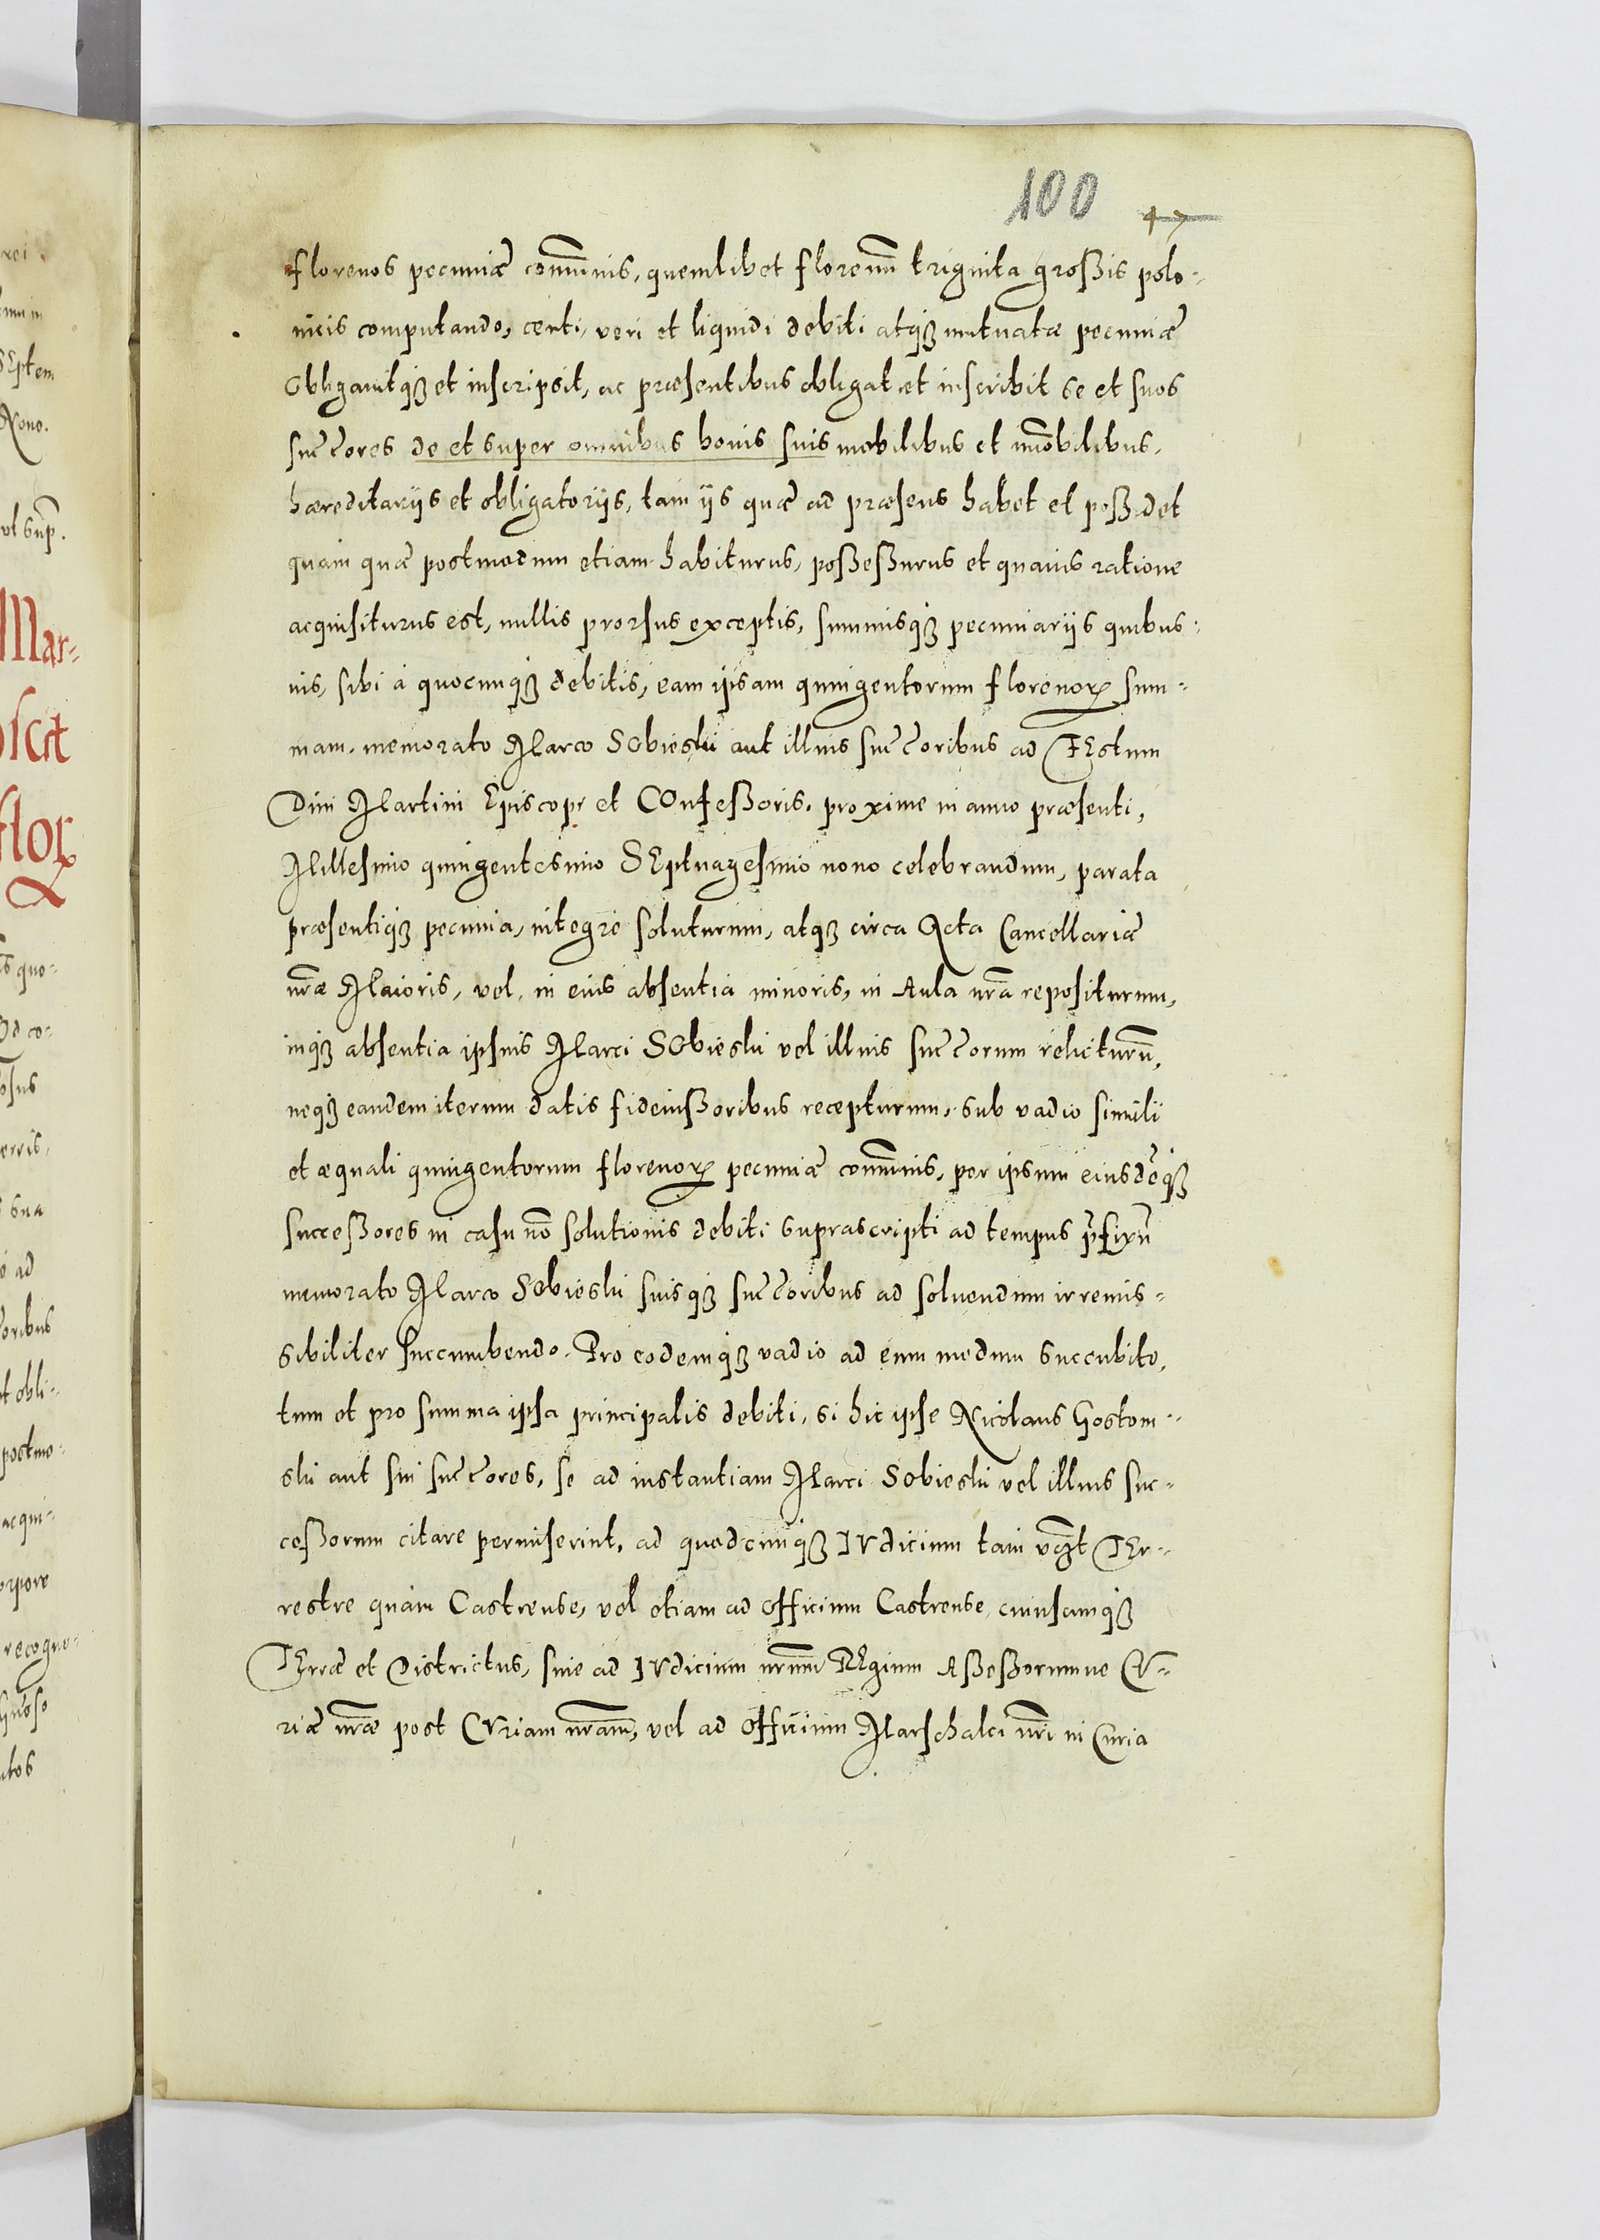 100
47
florenos pecuniæ com̅unis, quemlibet florenum triginta großis polo-
nicis computando, certi, veri et liquidi debiti atq₃ mutuatæ pecuniæ
Obligauitq₃ et inscripsit, ac præsentibus obligat et inscribit se et suos
succ̅ores de et super omnibus bonis suis mobilibus et im̅obilibus,
hæreditarijs et obligatorijs, tam ijs quæ ad præsens habet et poßidet
quam quæ postmodum etiam habiturus, poßeßurus et quauis ratione
acquisiturus est, nullis prorsus exceptis, summisq₃ pecuniarijs quibus-
uis, sibi à quocunq₃ debitis, eam ipsam quingentorum florenoꝝ sum-
mam, memorato Marco SObieski aut illius succ̅oribus ad FEstum
Diui Martini Episcopi et COnfeßoris, proxime in anno præsenti,
Millesimo quingentesimo SEptuagesimo nono celebrandum, parata
præsentiq₃ pecunia, integre soluturum, atq₃ circa Acta Cancellariæ
nr̅æ Maioris, vel, in eius absentia minoris, in Aula nr̅a repositurum,
inq₃ absentia ipsius Marci SObieski vel illius succ̅orum relicturu̅,
neq₃ eandem iterum datis fideiußoribus recepturum, sub vadio simili
et æquali quingentorum florenoꝝ pecuniæ com̅unis, per ipsum eiusde̅q₃
succeßores in casu no̅ solutionis debiti suprascripti ad tempus p̅fixu̅
memorato Marco SObieski suisq₃ succ̅oribus ad soluendum irremis-
sibiliter succumbendo. Pro eodemq₃ vadio ad eum modum succubito,
tum et pro summa ipsa principalis debiti, si hic ipse Nicolaus Gostom-
ski aut sui succ̅ores, se ad instantiam Marci Sobieski vel illius suc-
ceßorum citare permiserint, ad quodcunq₃ IVdicium tam vz̅t TEr-
restre quàm Castrense, vel etiam ad officium Castrense cuiuscunq₃
TErræ et Districtus, siue ad IVdicium nr̅um REgium Aßeßorumue CV-
riæ nr̅æ post CVriam nr̅am, vel ad officium Marschalci nr̅i in Curia